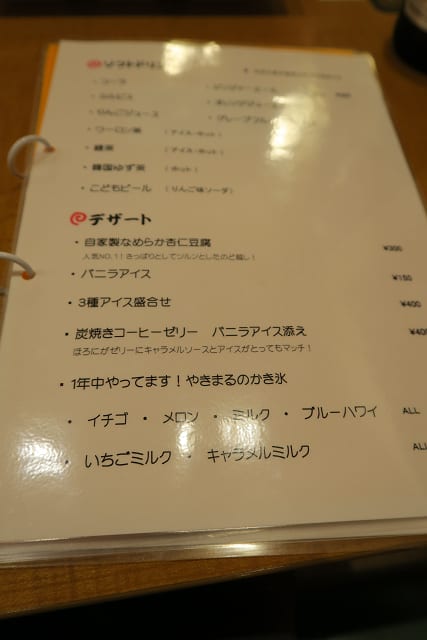 ソフトドリンク
・コーラ
・ジンジャーエール
・カルピス
・オレンジジュース
・りんごジュース
・グレープフルーツ
・ウーロン茶 （アイス・ホット）
・緑茶 （アイス・ホット）
・韓国ゆず茶 （ホット）
・こどもビール （りんご味ソーダ）
デザート
・自家製なめらか杏仁豆腐 ¥300
人気NO.1！さっぱりとしてツルンとしたのど越し！
・バニラアイス ¥150
・3種アイス盛合せ ¥400
・炭焼きコーヒーゼリー バニラアイス添え ¥400
ほろにがゼリーにキャラメルソースとアイスがとってもマッチ！
・1年中やってます！やきまるのかき氷
・イチゴ ・ メロン ・ ミルク ・ ブルーハワイ ALL
・いちごミルク ・ キャラメルミルク ALL